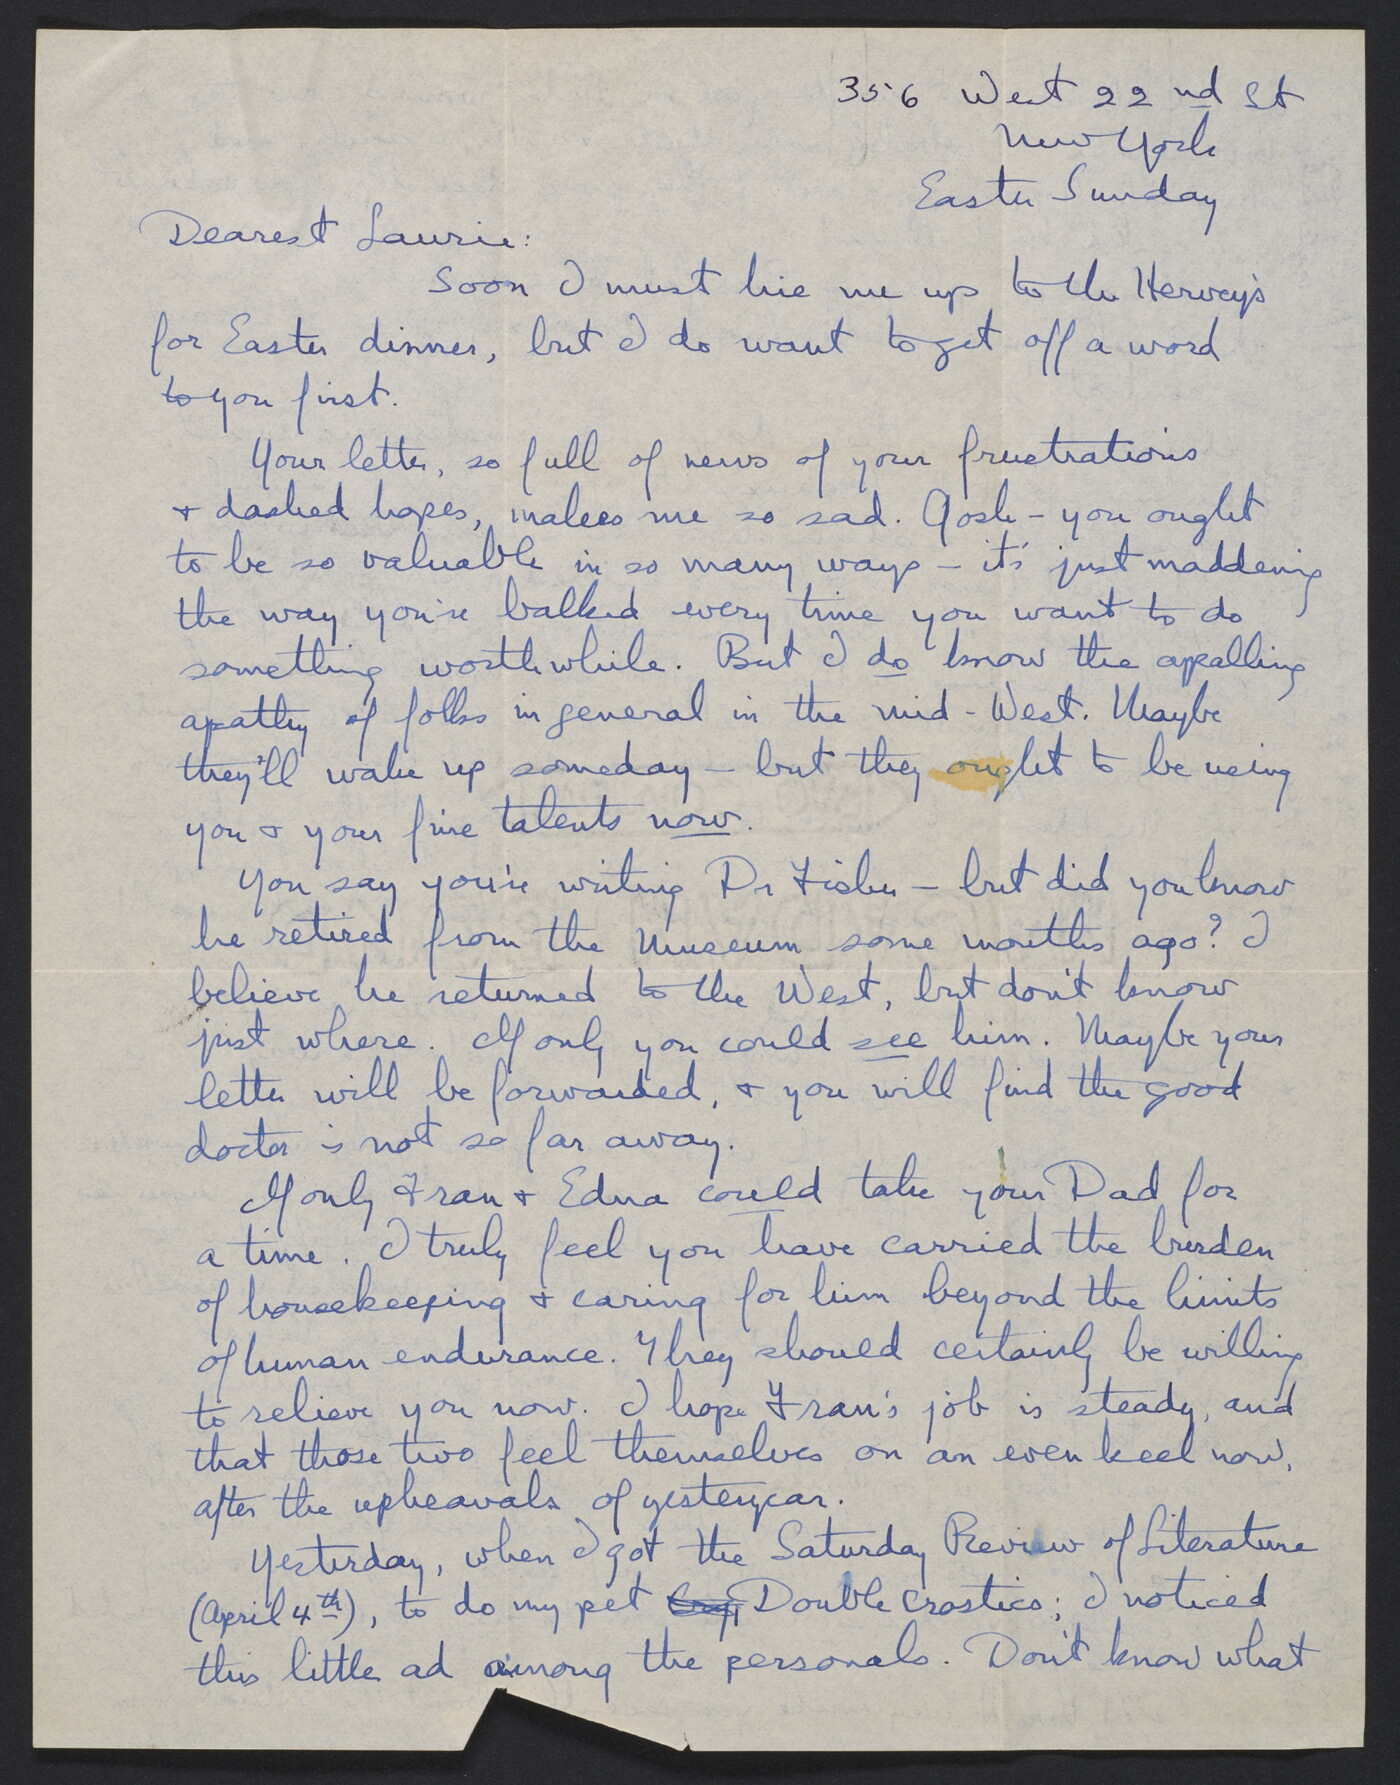 356 West 22nd St
New York
Easter Sunday
Dearest Laurie:
Soon I must hie me up to the Hervey's
for Easter dinner, but I do want to get off a word
to you first.
Your letter, so full of news of your frustrations
+ dashed hopes, makes me so sad. Gosh - you ought
to be so valuable in so many ways - it's just maddening
the way you're balked every time you want to do
something worthwhile. But I do know the appalling
apathy of folks in general in the mid-West. Maybe
they'll wake up someday - but they ought to be using
you + your fine talents now.
You say you're writing Dr Fisher - but did you know
he retired from the Museum some months ago? I
believe he returned to the West, but don't know
just where. If only you could see him. Maybe your
letter will be forwarded, + you will find the good
doctor is not so far away.
If only Fran + Edna could take your Dad for
a time. I truly feel you have carried the burden
of housekeeping + caring for him beyond the limits
of human endurance. They should certainly be willing
to relieve you now. I hope Fran's job is steady, and
that those two feel themselves on an even keel now,
after the upheavals of yesteryear.
Yesterday, when I got the Saturday Review of Literature
(April 4th), to do my pet Double Crostics; I noticed
this little ad among the personals. Don't know what